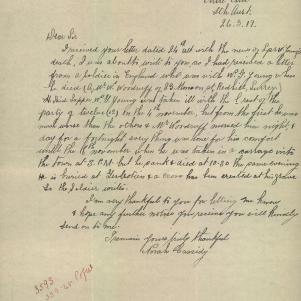 Sth Aust.
26.3.19.
Dear Sir
I received your letter dated 24th ult with the news of Spr W. Young's
death, I was about to write to you as I had received a letter
from a soldier in England who was with W. Young when
he died (A. W. Woodruff of 23 Road, Redhill, Surrey)
He said Sapper W. Young was taken ill with the rest of the
party of twelve (12) on the 4th november, but from the first he was
much worse than the others & Mr Woodruff nursed him night &
day for a fortnight every thing was done for his comfort
until the 18th november when he was taken in a carriage into
the town at 5. P.M. but he sank & died at 10.30 the same evening
He is buried at & a cross has been erected at his grave
So the soldier writes.
I am very thankful to you for letting me know
& hope any further notice you receive you will kindly
send on to me.
I remain yours truly thankful
Norah Cassidy
3593